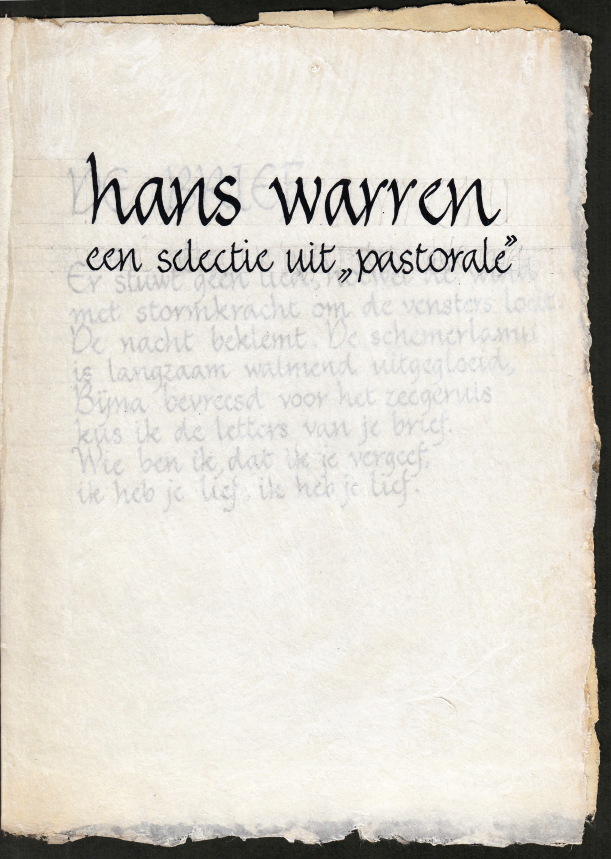 hans warren
een selectie uit „pastorale”
DE BRIEF
Er stuwt geen
met stormkracht om de vensters
De nacht beklemt. De schemerlamp
is langzaam walmend uitgegloeid,
Bijna bevreesd voor het zeegeruis
kus ik de letters van je brief.
Wie ben ik, dat ik je vergeef,
ik heb je lief, ik heb je lief.